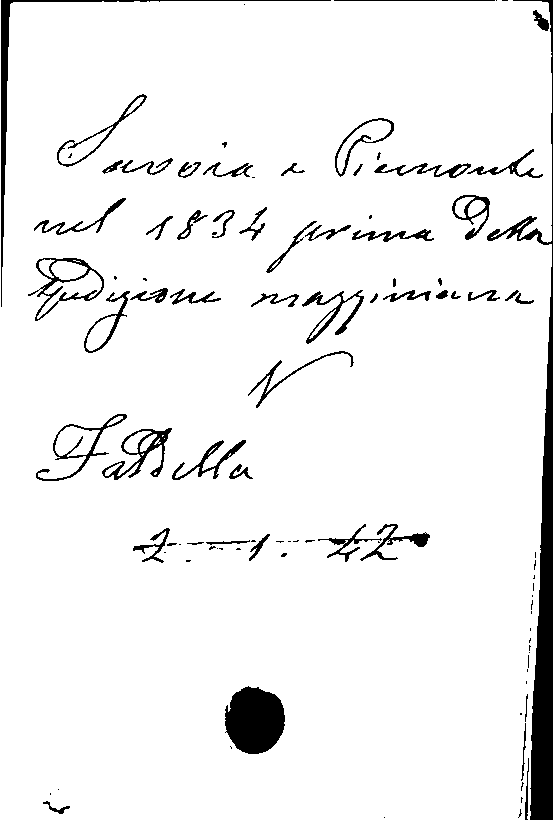 Savoia e Piemonte
nel 1834 prima Della
Spedizione mazziniana
V
Faldella
2. 1. 42